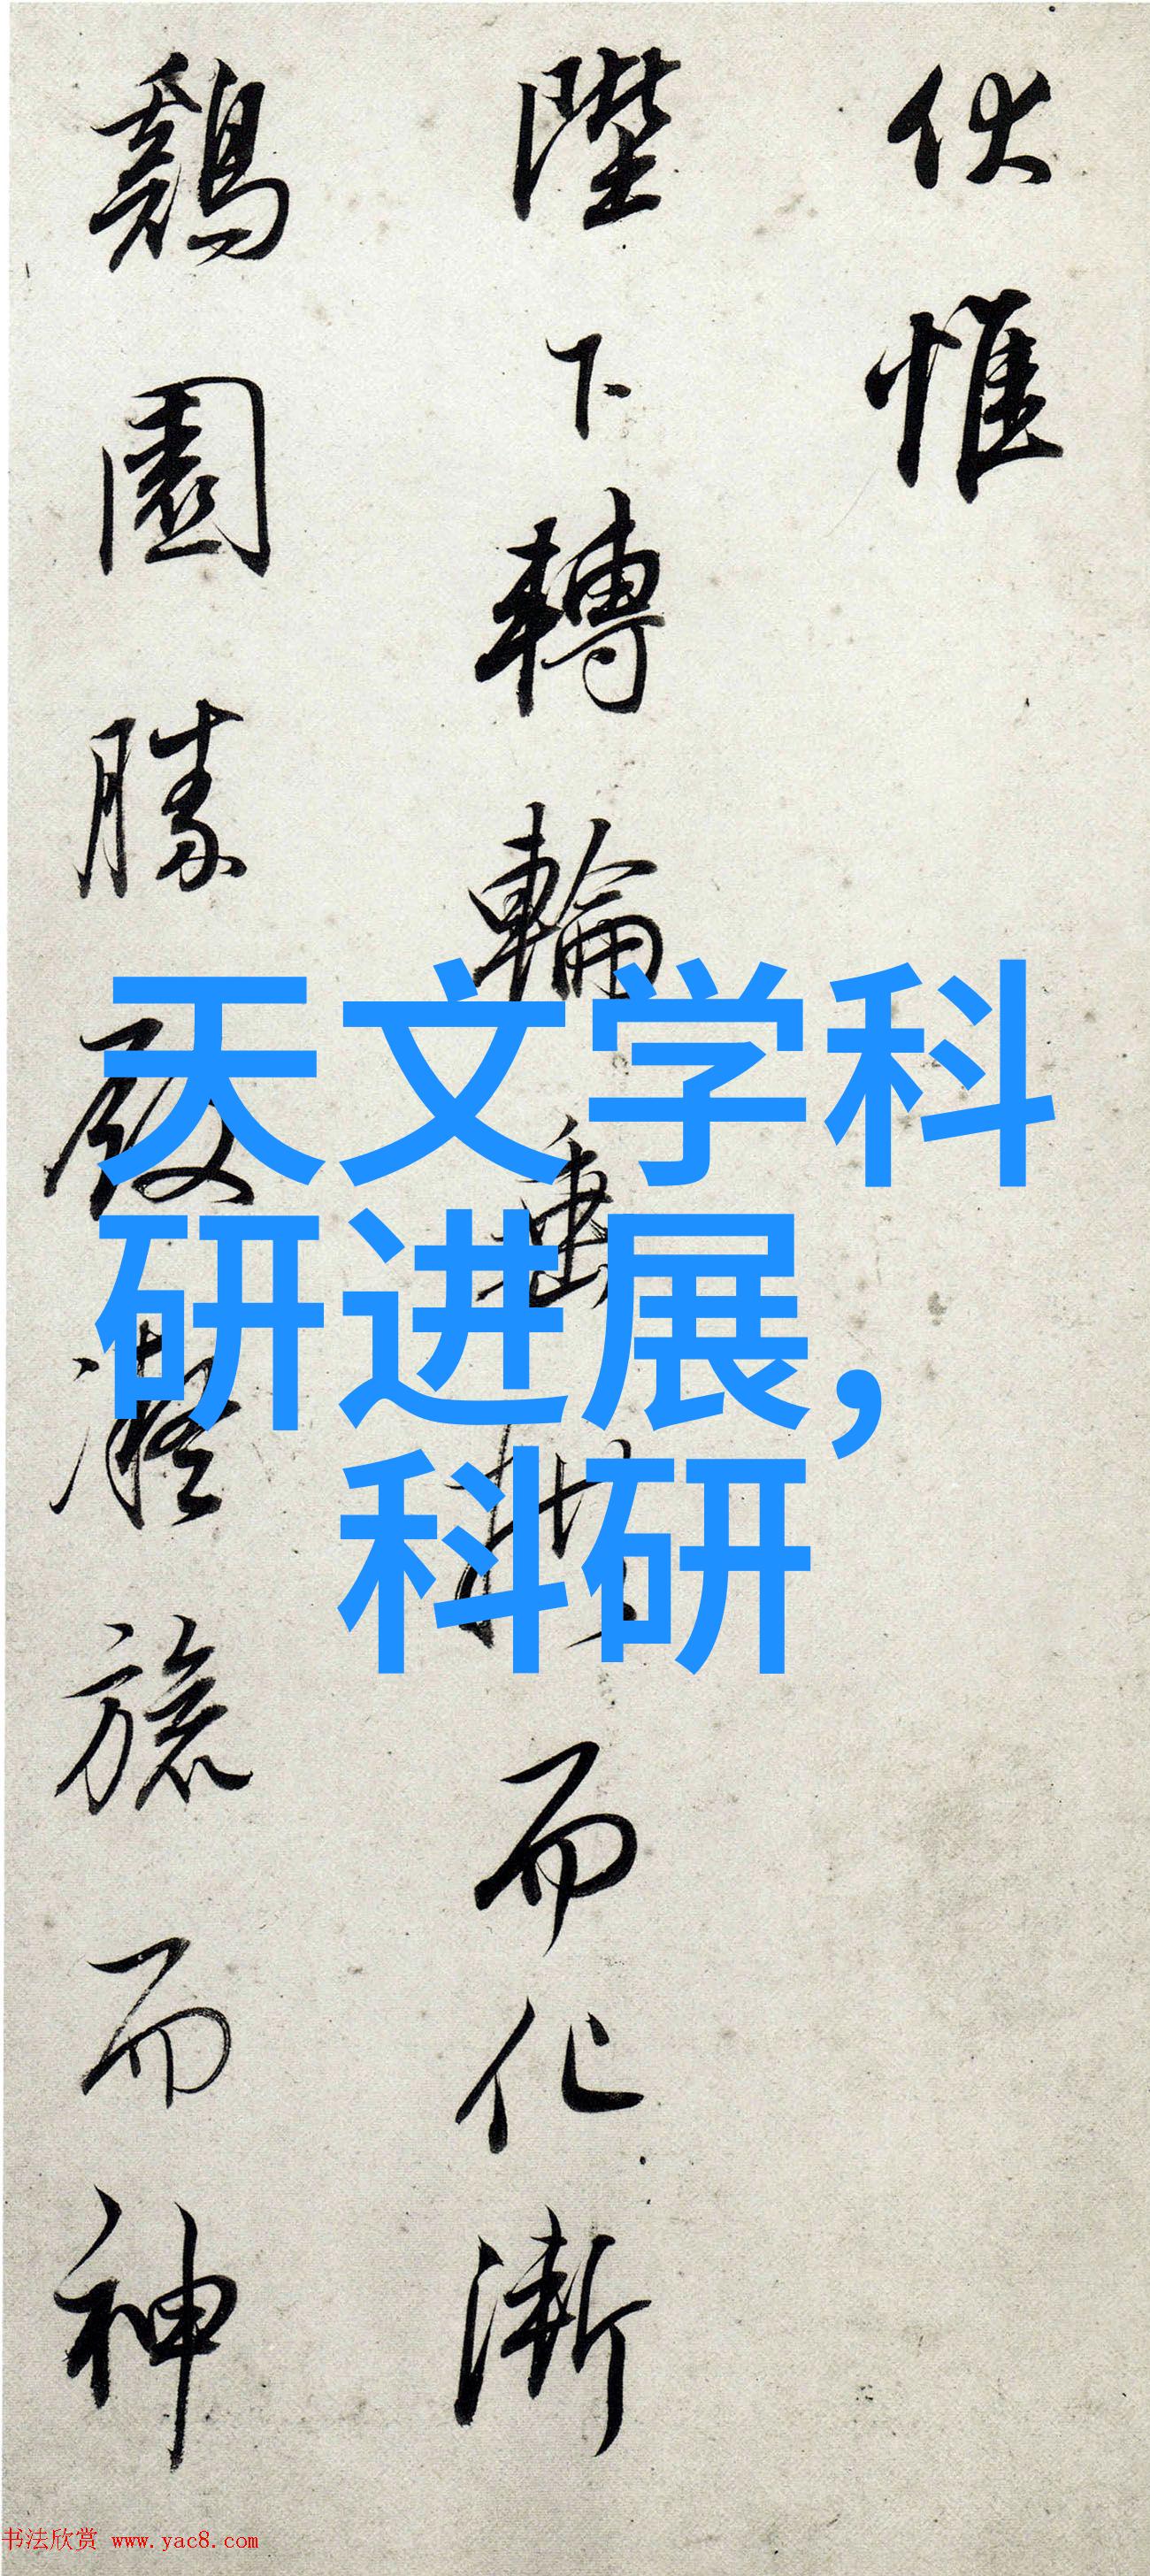 伏惟
陛下轉輪垂拱而化漸
鷄園勝殿凝旒而神
天文学科
研进展，
科研
书法欣赏 www.yac8.com